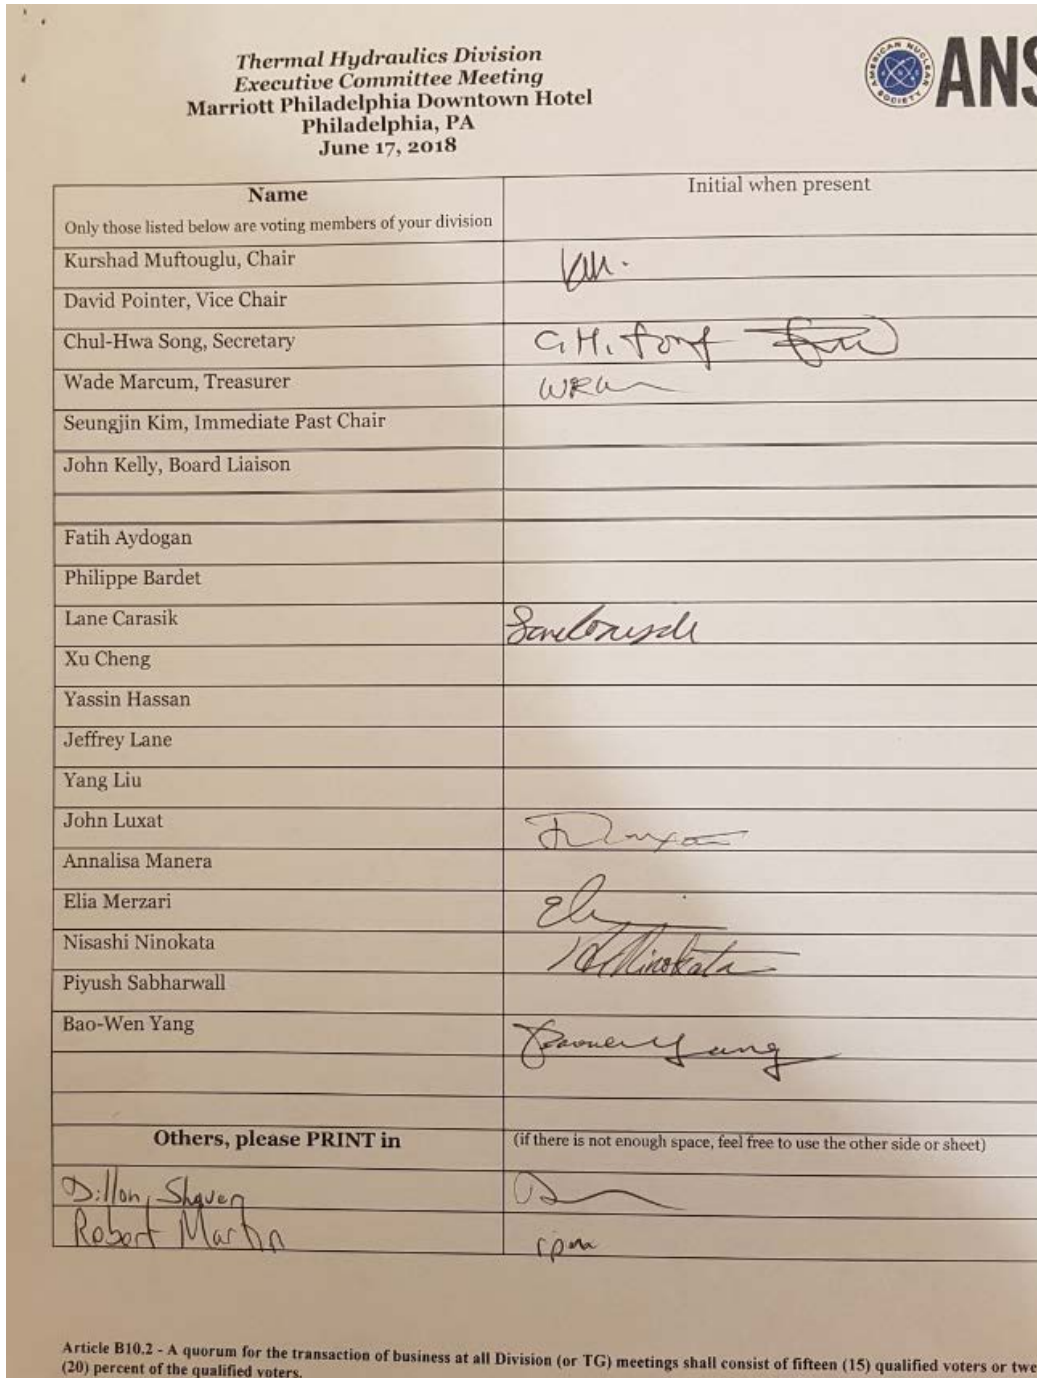 Thermal Hydraulics Division
Executive Committee Meeting
Marriott Philadelphia Downtown Hotel
Philadelphia, PA
June 17, 2018
AMERICAN NUCLEAR SOCIETY
ANS
Name
Initial when present
Only those listed below are voting members of your division
Kurshad Muftouglu, Chair
David Pointer, Vice Chair
Chul-Hwa Song, Secretary
C.H. Song
Wade Marcum, Treasurer
Seungjin Kim, Immediate Past Chair
John Kelly, Board Liaison
Fatih Aydogan
Philippe Bardet
Lane Carasik
Xu Cheng
Yassin Hassan
Jeffrey Lane
Yang Liu
John Luxat
Annalisa Manera
Elia Merzari
Nisashi Ninokata
H. Ninokata
Piyush Sabharwall
Bao-Wen Yang
Yang
Others, please PRINT in
(if there is not enough space, feel free to use the other side or sheet)
Dillon, Shaver
Robert Martin
rpm
Article B10.2 - A quorum for the transaction of business at all Division (or TG) meetings shall consist of fifteen (15) qualified voters or twe
(20) percent of the qualified voters.